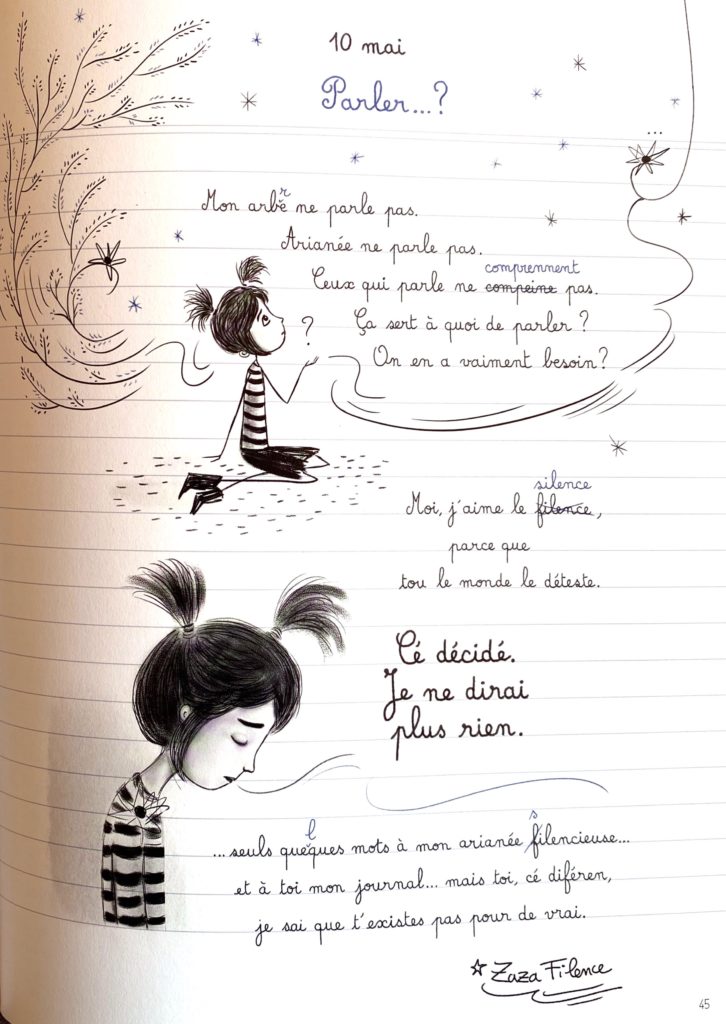 10 mai
Parler...?
...
r
Mon arbe ne parle pas.
Arianée ne parle pas.
comprennent
Ceux qui parle ne compeine pas.
?
Ça sert à quoi de parler ?
On en a vaiment besoin ?
silence
Moi, j'aime le filence,
parce que
tou le monde le déteste.
Cé décidé.
Je ne dirai
plus rien.
l
s
...seuls queques mots à mon arianée filencieuse...
et à toi mon journal... mais toi, cé diféren,
je sai que t'existes pas pour de vrai.
Zaza Filence
45